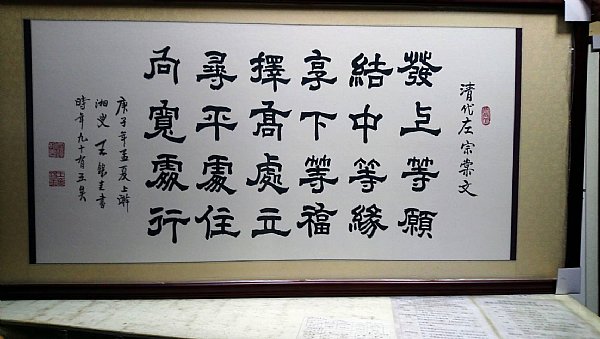 清代左宗棠文
發上等願
結中等緣
享下等福
擇高處立
尋平處住
向寬處行
庚子年孟夏上澣
湘叟 王 書
時年九十有五矣